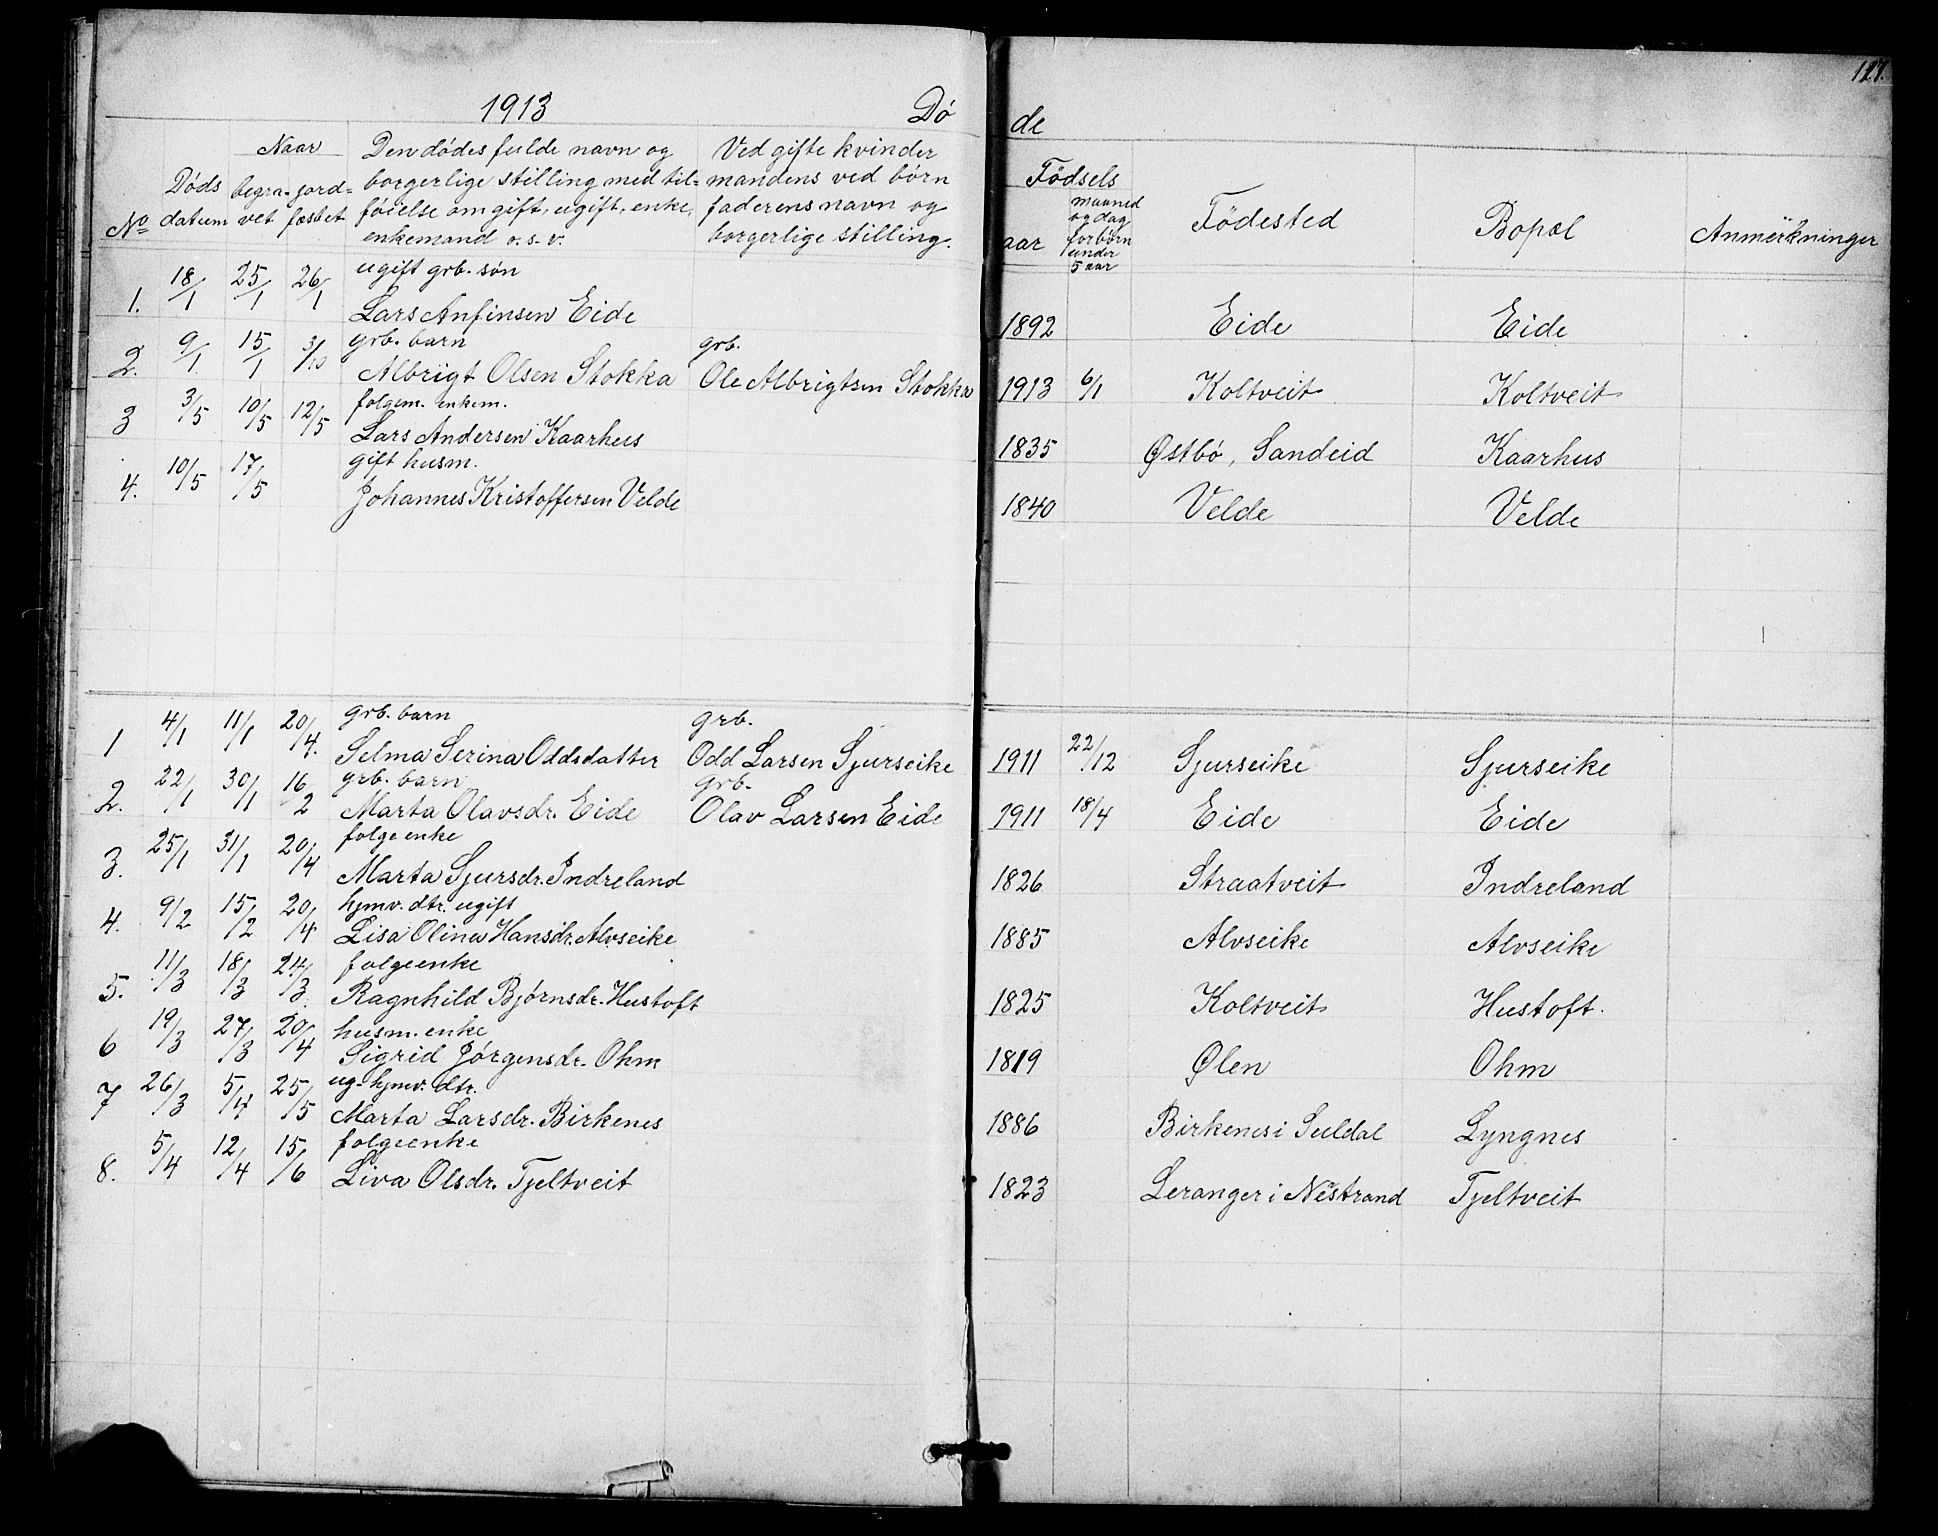 127.
1913 Dö de
Naar
No Döds datum begravet jordfæstet
Den dödes fulde navn og borgerlige stilling med tilföielse om gift, ugift, enke, enkemand o. s. v.
Ved gifte kvinder mandens ved börn faderens navn og borgerlige stilling.
Födsels aar maaned og dag for börn under 5 aar
Födested Bopæl Anmerkninger
ugift grb. sön
1. 18/1 25/1 26/1 Lars Anfinsen Eide 1892 Eide Eide
grb. barn grb.
2. 9/1 15/1 Albrigt Olsen Stokka Ole Albrigtsen Stokka 1913 6/1 Koltveit Koltveit
folgem. enkem.
3 3/5 10/5 12/5 Lars Andersen Kaarhus 1835 Østbö, Sandeid Kaarhus
gift husm.
4. 10/5 17/5 Johannes Kristoffersen Velde 1840 Velde Velde
grb. barn grb.
1 4/1 11/1 20/4. Selma Serina Oddsdatter Odd Larsen Sjurseike 1911 22/12 Sjurseike Sjurseike
grb. barn grb.
2. 22/1 30/1 16/2 Marta Olavsdr. Eide Olav Larsen Eide 1911 18/4 Eide Eide
folgeenke
3. 25/1 31/1 20/4 Marta Sjursdr. Indreland 1826 Straatveit Indreland
hjmv. dtr. ugift
4. 9/2 15/2 20/4 Lisa Olina Hansdr. Alvseike 1885 Alvseike Alvseike
folgeenke
5. 11/3 18/3 24/3 Ragnhild Bjørnsdr. Hustoft 1825 Koltveit Hustoft.
husm. enke
6 19/3 27/3 20/4 Sigrid Jörgensdr. Ohm 1819 Ølen Ohm
ug. hjmv. dtr.
7 26/3 5/4 25/5 Marta Larsdr. Birkenes 1886 Birkenes i Suldal Lyngnes
folgeenke
8. 5/4 12/4 15/6 Liva Olsdr. Tjeltveit 1823 Leranger i Nestrand Tjeltveit